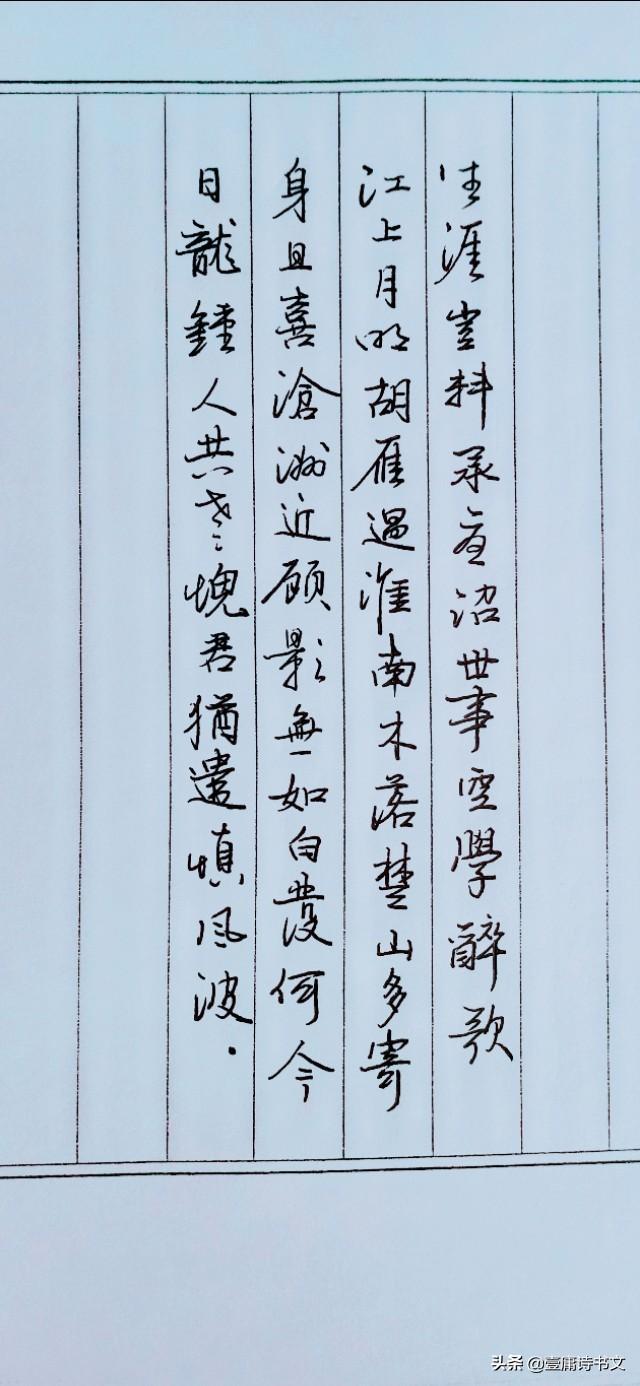 生涯豈料承詔世事空學醉歌
江上月明胡雁過淮南木落楚山多寄
身且喜滄洲近顾影無如白發何今
日龍鍾人共老愧君猶遣慎风波.
头条 @壹庸诗书文